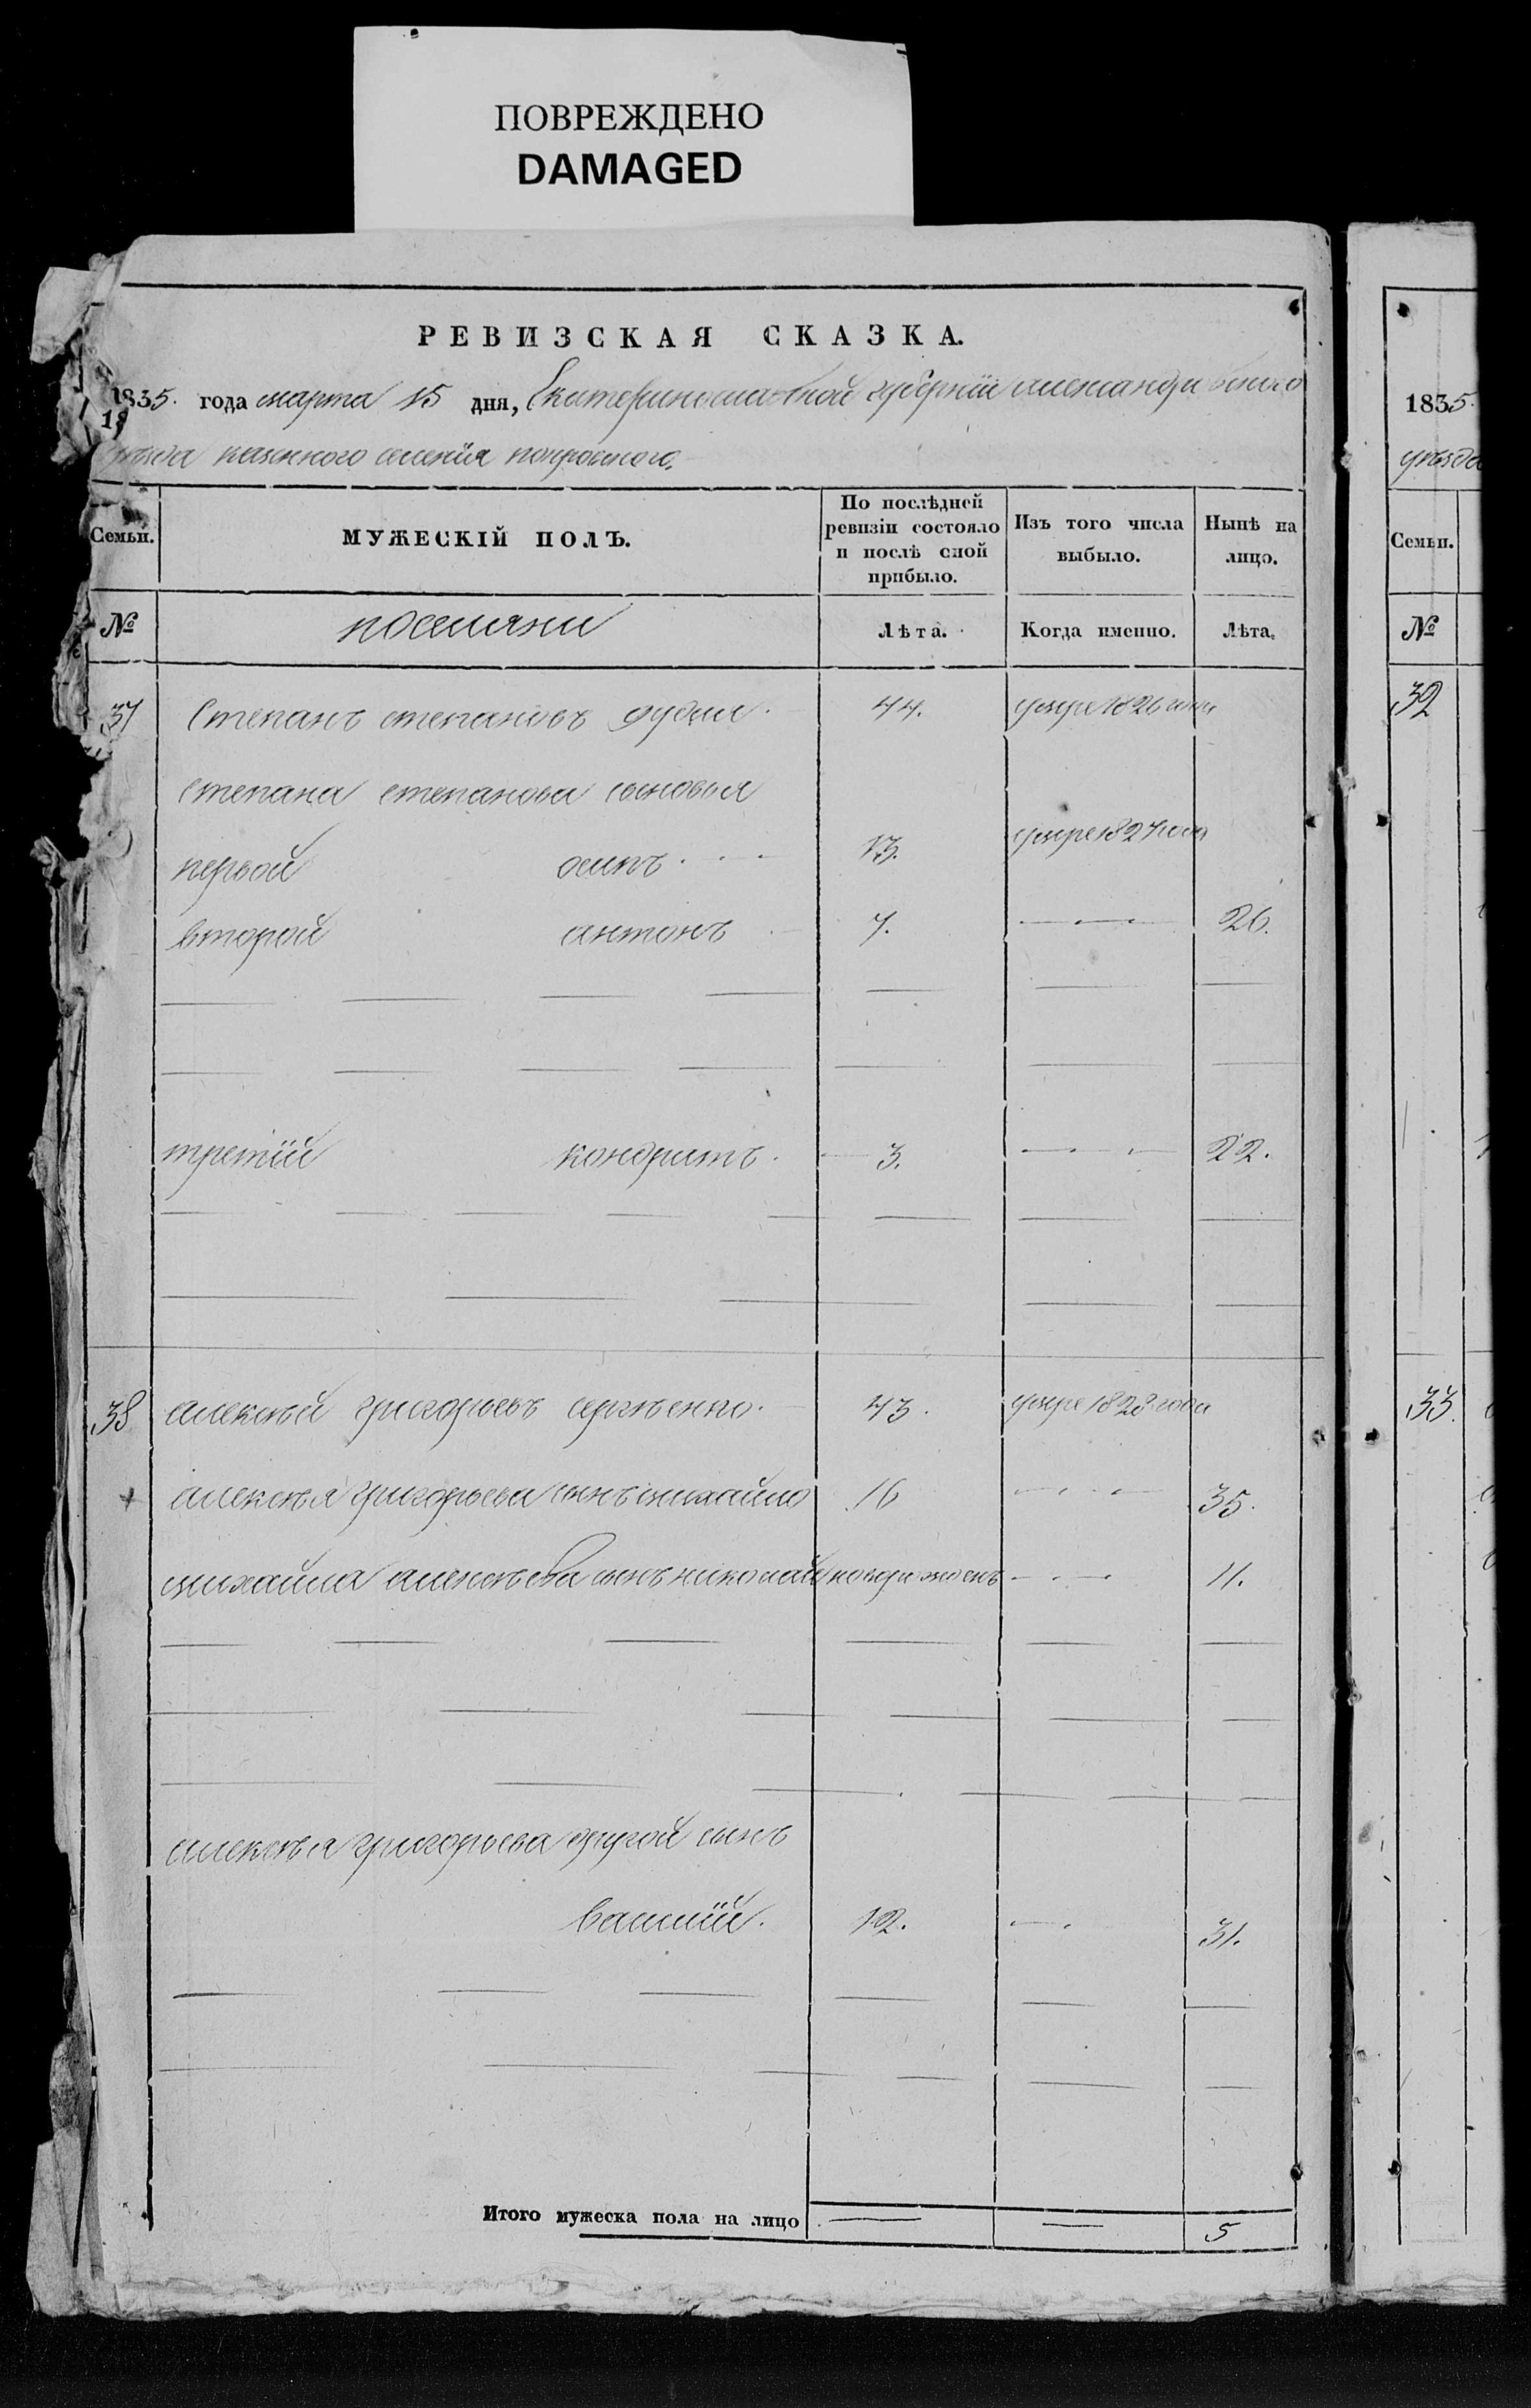 ПОВРЕЖДЕНО
DAMAGED
РЕВИЗСКАЯ СКАЗКА.
1835. года марта 15 дня, Екатеринославской губернїи александровского
уѣзда казенного селенїя покровского.
Семьи.
МУЖЕСКІЙ ПОЛЪ.
По послѣдней ревизіи состояло и послѣ оной прибыло.
Изъ того числа выбыло.
Нынѣ на лицо.
№
поселяни
Лѣта.
Когда именно.
Лѣта.
37 Степанъ степановъ 44. умре 1826 года
Степана степанова сыновья
первой осипъ 13. умре 1827 года
второй антонъ 7. 26.
третїй кондратъ 3. 22.
38 алексѣй григорьевъ сергѣенко. 43. умре 1828 года
алексѣя григорьева сынъ михайло 16 35.
михайла алексѣева сынъ николай новорожденъ 11.
алексѣя григорьева другой сынъ
василїй. 12. 31.
Итого мужеска пола на лицо 5
1835.
уѣзда
Семьи.
№
32
33.